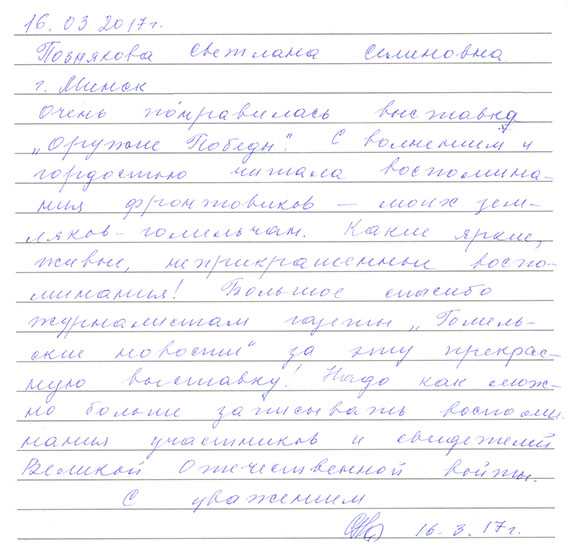 16.03 2017г.
Познякова Светлана Семеновна
г. Минск
Очень понравилась выставка
„Оружие Победы". С волнением и
гордостью читала воспомина-
ния фронтовиков – моих зем-
ляков-гомельчан. Какие яркие,
живые, неприкрашенные воспо-
минания! Большое спасибо
журналистам газеты „Гомель-
ские новости" за эту прекрас-
ную выставку! Надо как мож-
но больше записывать воспоми-
нания участников и свидетелей
Великой Отечественной войны.
С уважением
16.3.17г.